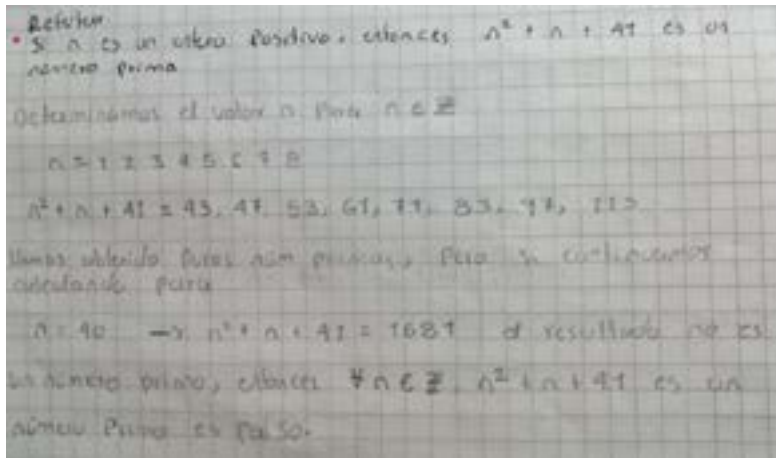 Refutar
• Si n es un entero Positivo, entonces n² + n + 41 es un
número primo
Determinamos el valor n Para n ∈ Z
n = 1 2 3 4 5 6 7 8
n² + n + 41 = 43, 47, 53, 61, 71, 83, 97, 113
Hemos obtenido Puros núm primos, Pero si continuamos
calculando para
n = 40 → n² + n + 41 = 1681 el resultado no es
un número primo, entonces ∀ n ∈ Z n² + n + 41 es un
número Primo es Falso.